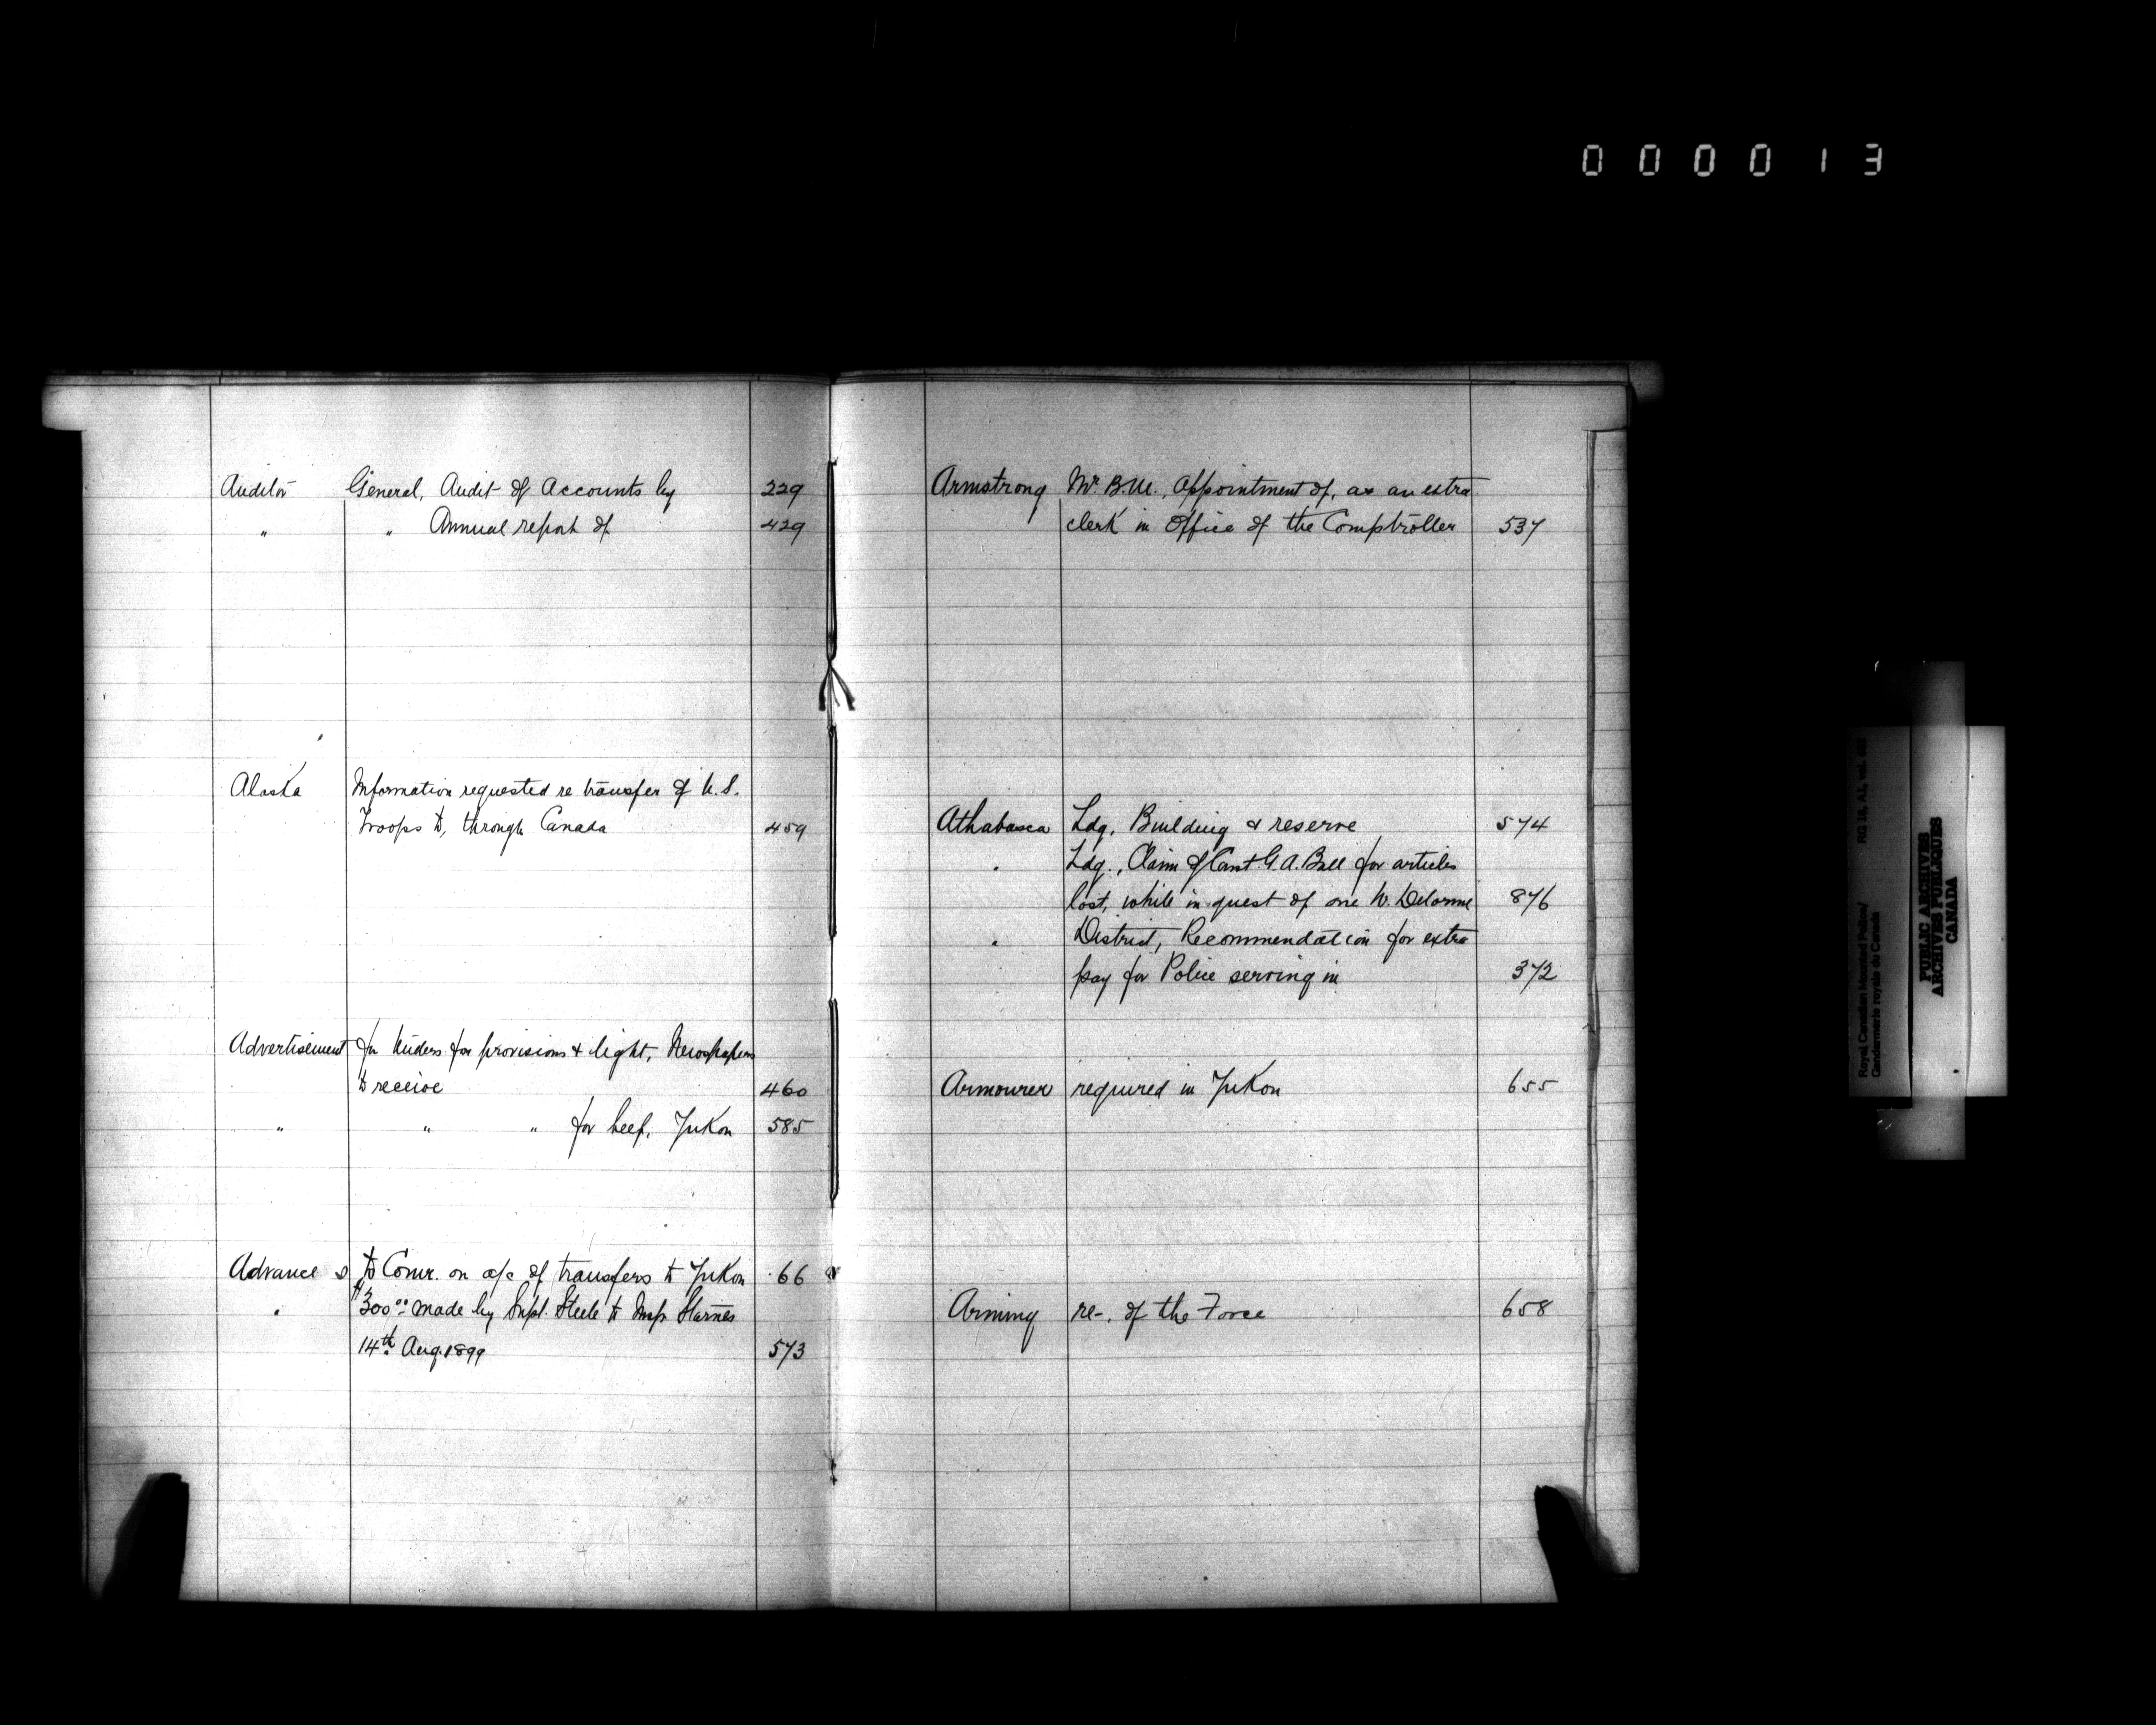 000013
Auditor General, Audit of Accounts by 229
" " Annual report of 429
Alaska Information requested re transfer of U.S.
Troops to, through Canada 459
Advertisement for tenders for provisions & light, Newspapers
to receive 460
" " " for beef, Yukon 585
Advance s to Comr. on a/c of transfers to Yukon 66
" $300.00 made by Supt. Steele to Insp. Starnes
14th Aug. 1899 573
Armstrong Mr. B.M., Appointment of, as an extra
clerk in Office of the Comptroller 537
Athabasca Ldg. Building & reserve 574
" Ldg., Claim of Const. G.A. Ball for articles
lost, while in quest of one W. Delorme 876
" District, Recommendation for extra
pay for Police serving in 372
Armourer required in Yukon 655
Arming re-. of the Force 658
Royal Canadian Mounted Police/ RG 18, A1, vol.
Gendarmerie royale du Canada
PUBLIC ARCHIVES
ARCHIVES PUBLIQUES
CANADA